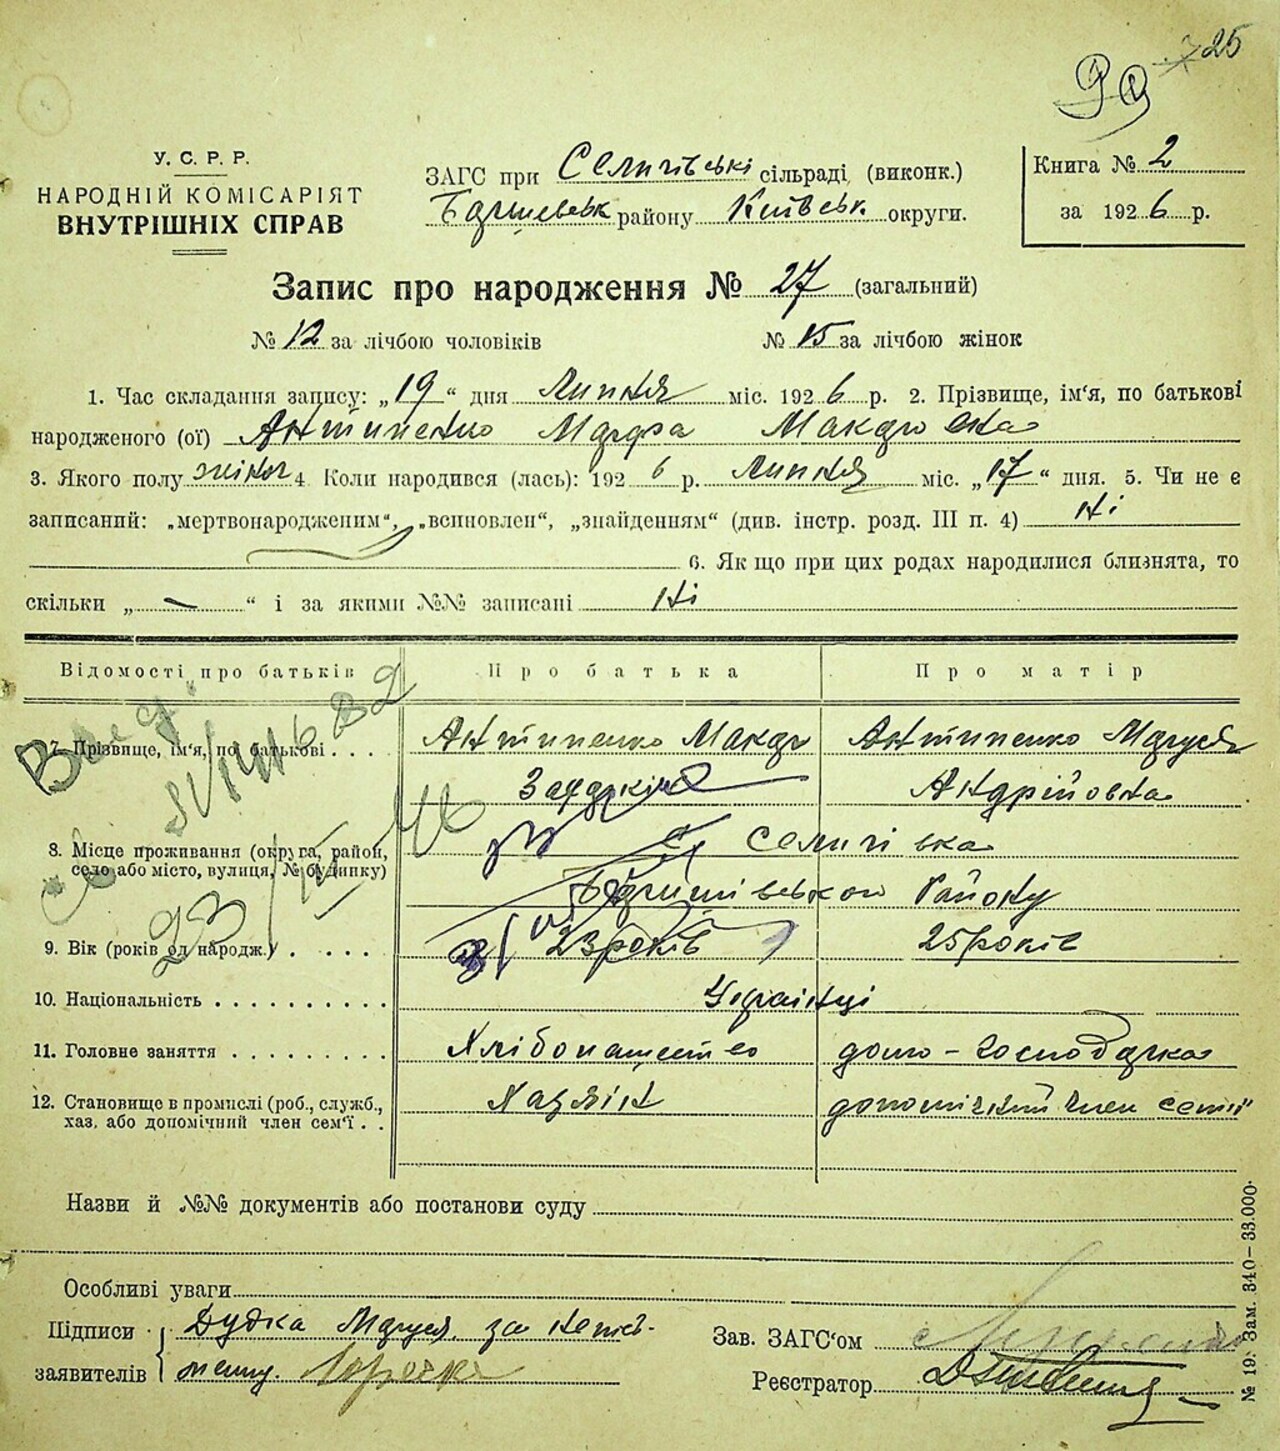 25
99
У. С. Р. Р.
НАРОДНІЙ КОМІСАРІЯТ
ВНУТРІШНІХ СПРАВ
ЗАГС при Селичівські сільраді (виконк.)
Баришевськ району Київськ округи.
Книга № 2
за 1926 р.
Запис про народження № 27 (загальний)
№ 12 за лічбою чоловіків № 15 за лічбою жінок
1. Час складання запису: „19“ дня Липня міс. 1926 р. 2. Прізвище, ім‘я, по батькові
народженого (ої) Антипенко Марфа Макаровна
3. Якого полу жіноч 4 Коли народився (лась): 1926 р. Липня міс. „17“ дня. 5. Чи не є
записаний: „мертвонародженим“, „всиновлен“, „знайденням“ (див. інстр. розд. III п. 4) Ні
6. Як що при цих родах народилися близнята, то
скільки „ — “ і за якими №№ записані Ні
Відомості про батьків Про батька Про матір
7. Прізвище, ім‘я, по батькові . . . Антипенко Макар Антипенко Маруся
Захаркін Андрійовна
8. Місце проживання (округа, район,
село або місто, вулиця, № будинку)
с. Селичівка
Баришівського Району
9. Вік (років од народж.) . . . . 23 років 25 років
10. Національність . . . . . . . . . . Українці
11. Головне заняття . . . . . . . . . Хлібопашество домо-господарка
12. Становище в промислі (роб., служб., Хазяін допомічний член семії
хаз. або допомічний член сем‘ї . .
Назви й №№ документів або постанови суду
Особливі уваги
Підписи Дудка Маруся за непись-
заявителів менну.
Зав. ЗАГС‘ом
Реєстратор
№ 19. Зам. 340—33.000.